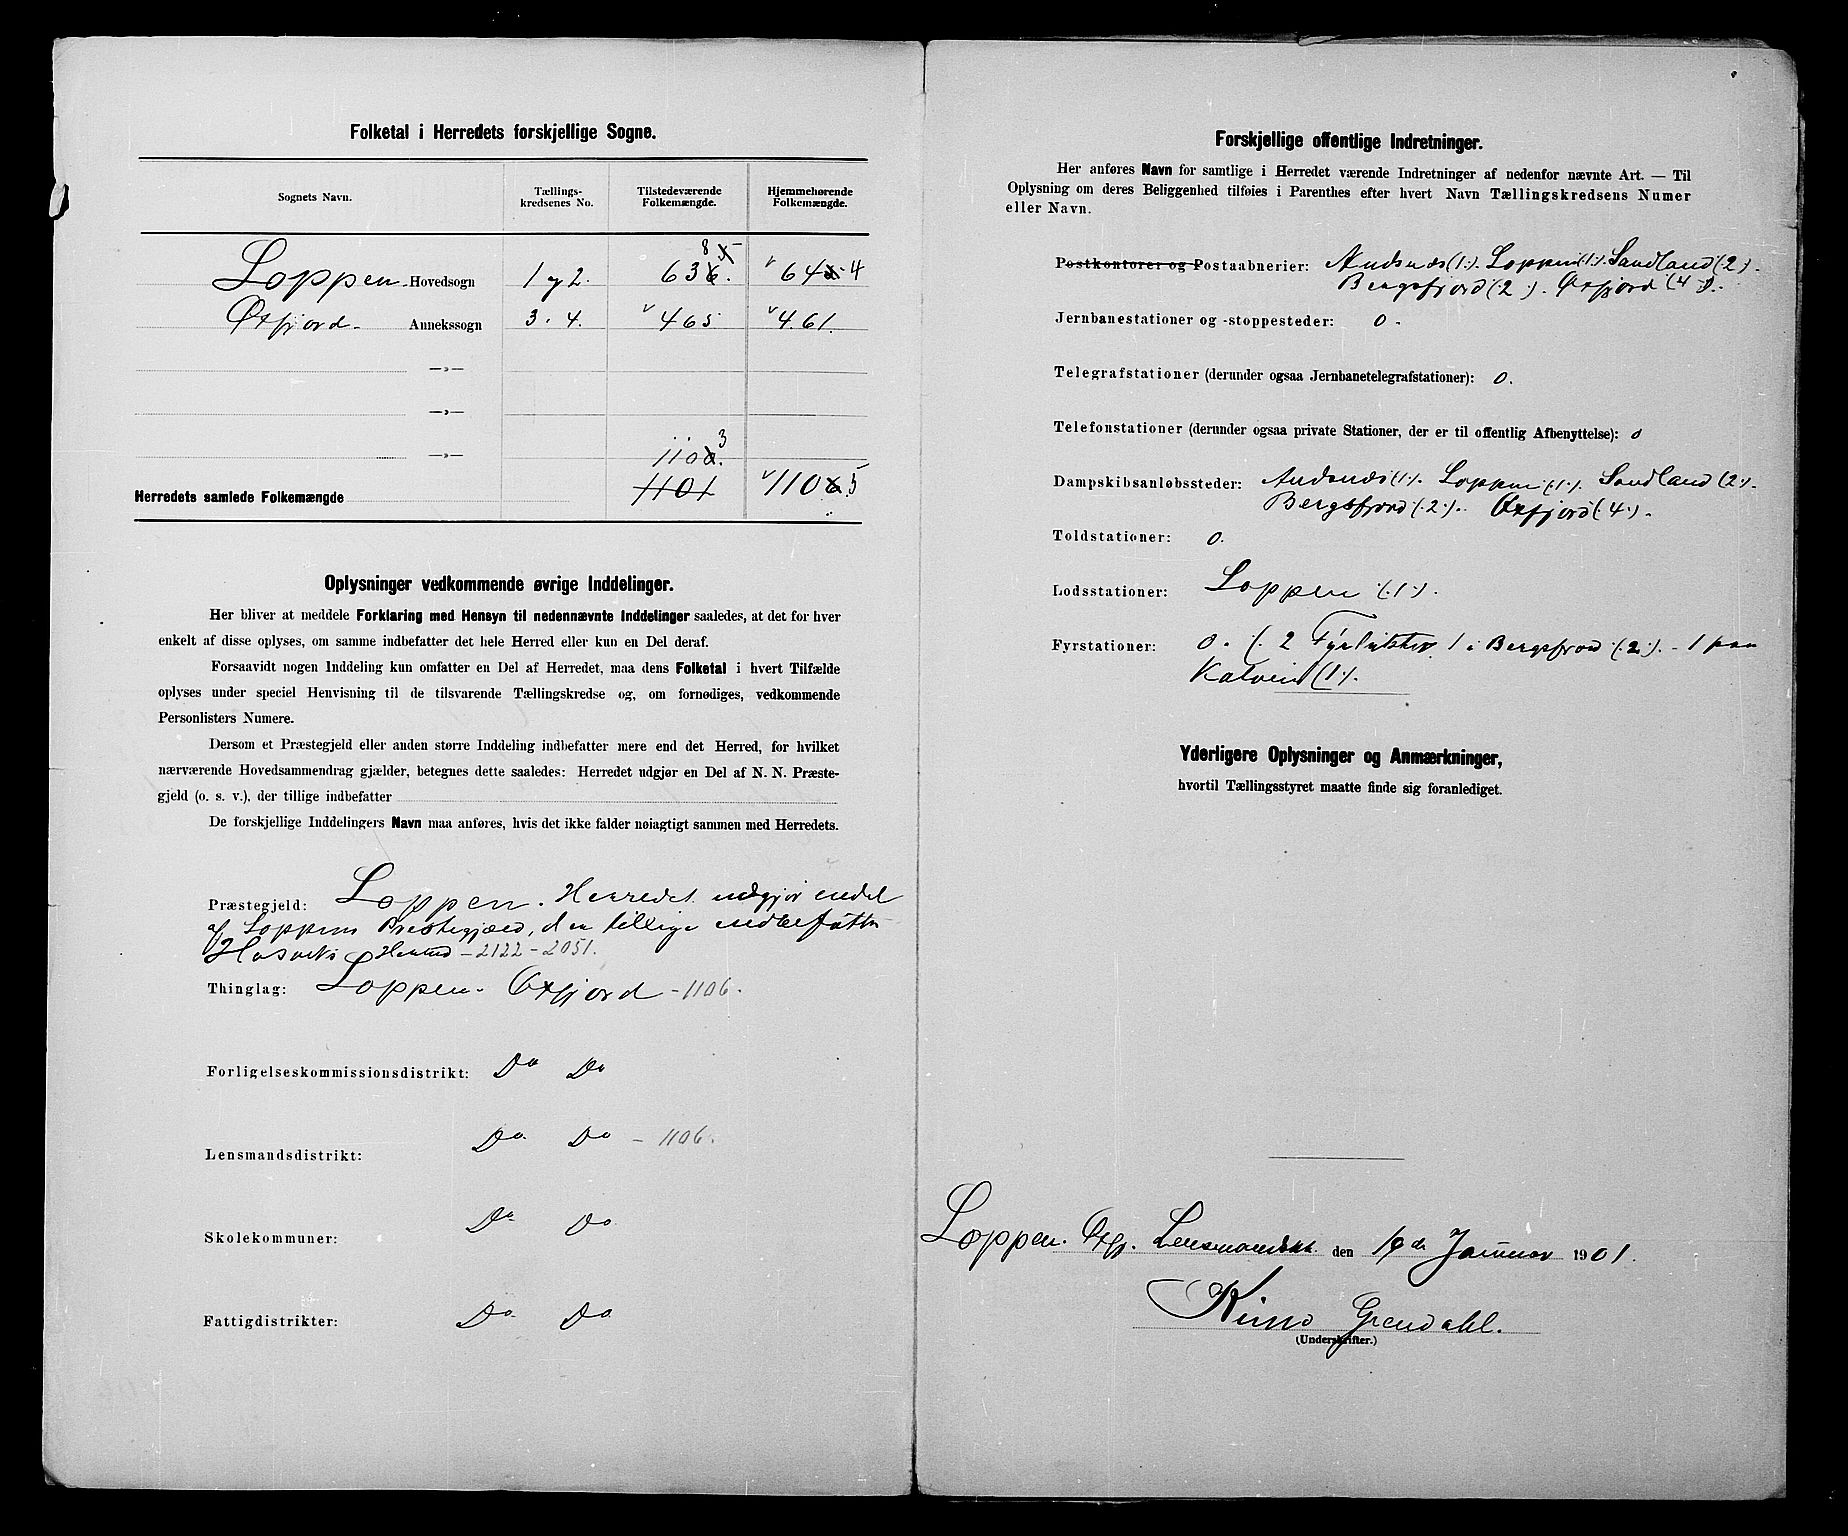 Folketal i Herredets forskjellige Sogne.
Sognets Navn. Tællings- kredsenes No. Tilstedeværende Folkemængde. Hjemmehørende Folkemængde.
8 5
Loppen Hovedsogn 1 og 2. 636. 645 4
Øxfjord Annekssogn 3 . 4. 465 461.
—»—
—»—
3
—»— 1100.
Herredets samlede Folkemængde 1101 1106 5
Oplysninger vedkommende øvrige Inddelinger.
Her bliver at meddele Forklaring med Hensyn til nedennævnte Inddelinger saaledes, at det for hver
enkelt af disse oplyses, om samme indbefatter det hele Herred eller kun en Del deraf.
Forsaavidt nogen Inddeling kun omfatter en Del af Herredet, maa dens Folketal i hvert Tilfælde
oplyses under speciel Henvisning til de tilsvarende Tællingskredse og, om fornødiges, vedkommende
Personlisters Numere.
Dersom et Præstegjeld eller anden større Inddeling indbefatter mere end det Herred, for hvilket
nærværende Hovedsammendrag gjælder, betegnes dette saaledes: Herredet udgjør en Del af N. N. Præste-
gjeld (o. s. v.), der tillige indbefatter
De forskjellige Inddelingers Navn maa anføres, hvis det ikke falder nøiagtigt sammen med Herredets.
Præstegjeld: Loppen. Herredet udgjør endel
af Loppens Prestegjeld, den tillige indbefatter
Hasviks Herred - 2122 - 2051.
Thinglag: Loppen - Øxfjord - 1106.
Forligelseskommissionsdistrikt: Do Do
Lensmandsdistrikt: Do Do - 1106.
Skolekommuner: Do Do
Fattigdistrikter: Do Do
Forskjellige offentlige Indretninger.
Her anføres Navn for samtlige i Herredet værende Indretninger af nedenfor nævnte Art. — Til
Oplysning om deres Beliggenhed tilføies i Parenthes efter hvert Navn Tællingskredsens Numer
eller Navn.
Postkontorer og Postaabnerier: Andsnæs (1). Loppen (1). Sandland (2).
Bergsfjord (2). Øxfjord (4).
Jernbanestationer og -stoppesteder: 0.
Telegrafstationer (derunder ogsaa Jernbanetelegrafstationer): 0.
Telefonstationer (derunder ogsaa private Stationer, der er til offentlig Afbenyttelse): 0
Dampskibsanløbssteder: Andsnæs (1). Loppen (1). Sandland (2).
Bergsfjord (2). Øxfjord (4).
Toldstationer: 0.
Lodsstationer: Loppen (1).
Fyrstationer: 0. (2 Fyrlygter 1 i Bergsfjord (2). - 1 paa
Kalven (1).
Yderligere Oplysninger og Anmærkninger,
hvortil Tællingsstyret maatte finde sig foranlediget.
Loppen. Øxfj. Lensmandsk. den 19de Januar 1901.
Grendahl.
(Underskrifter.)